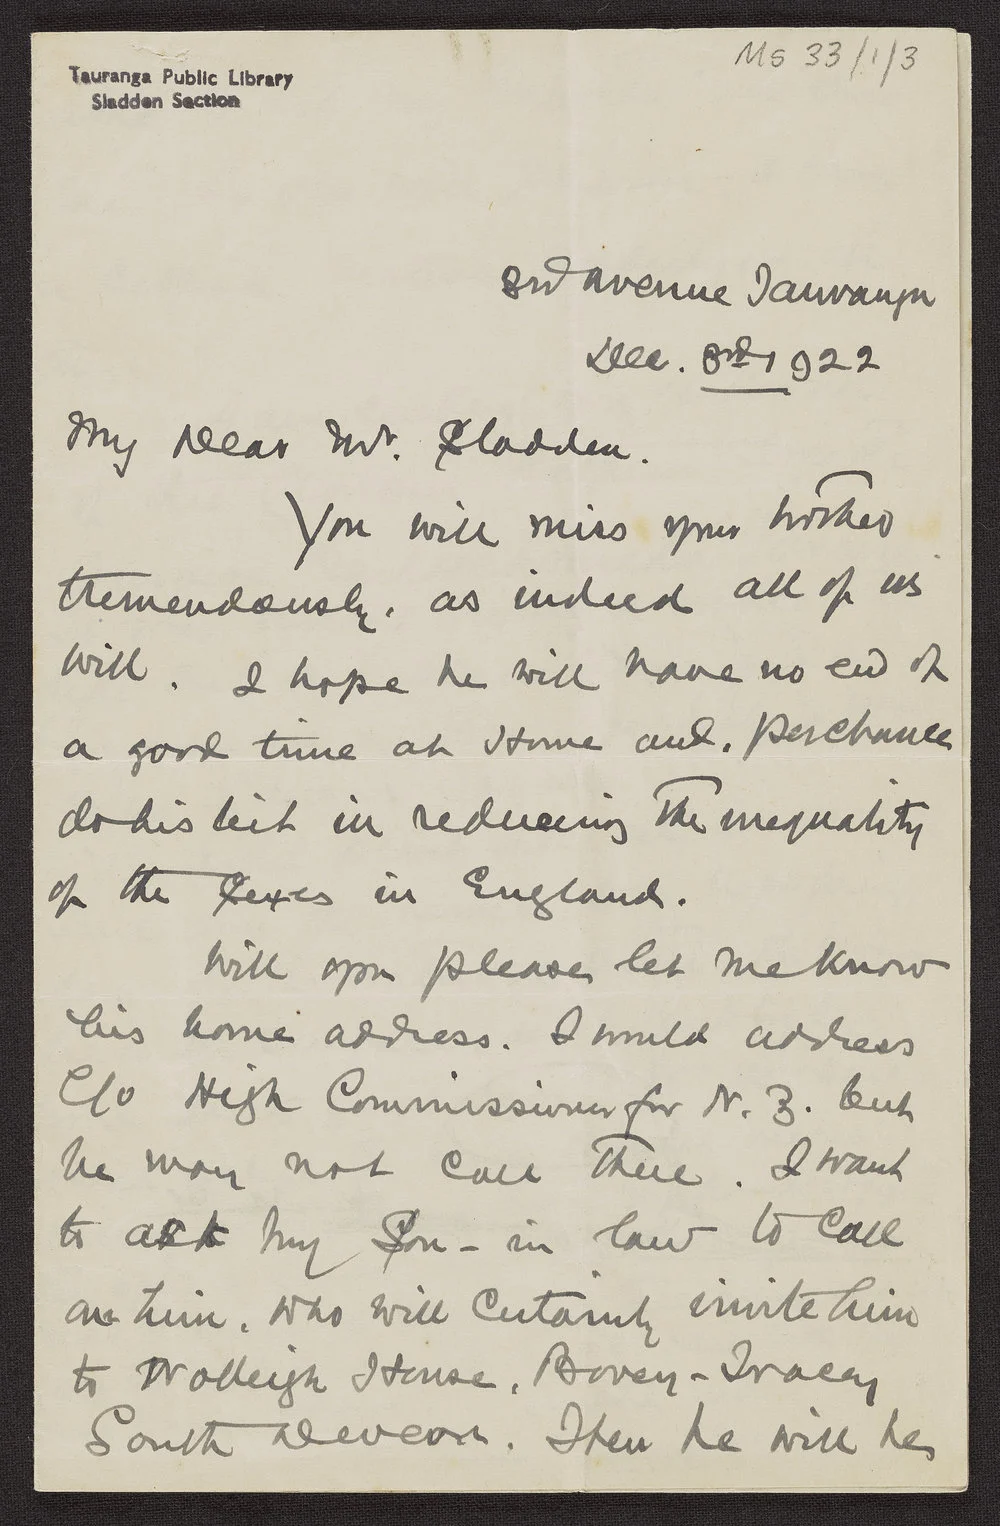 Ms 33/1/3
Tauranga Public Library
Sladden Section
3rd Avenue Tauranga
Dec. 3rd 1922
My Dear Mr. Sladden.
You will miss your brother
tremendously, as indeed all of us
will. I hope he will have no end of
a good time at Home and, perchance
do his bit in reducing the inequality
of the Sexes in England.
Will you please let me know
his home address. I would address
C/o High Commissioner for N. Z. but
he may not call there. I want
to ask my Son-in law to call
on him, who will certainly invite him
to Wolleigh House, Bovey-Tracey
South Devon. Then he will be